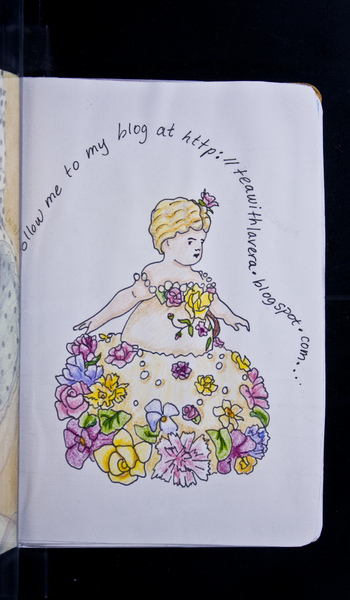 ollow me to my blog at http://teawithlavera.blogspot.com....